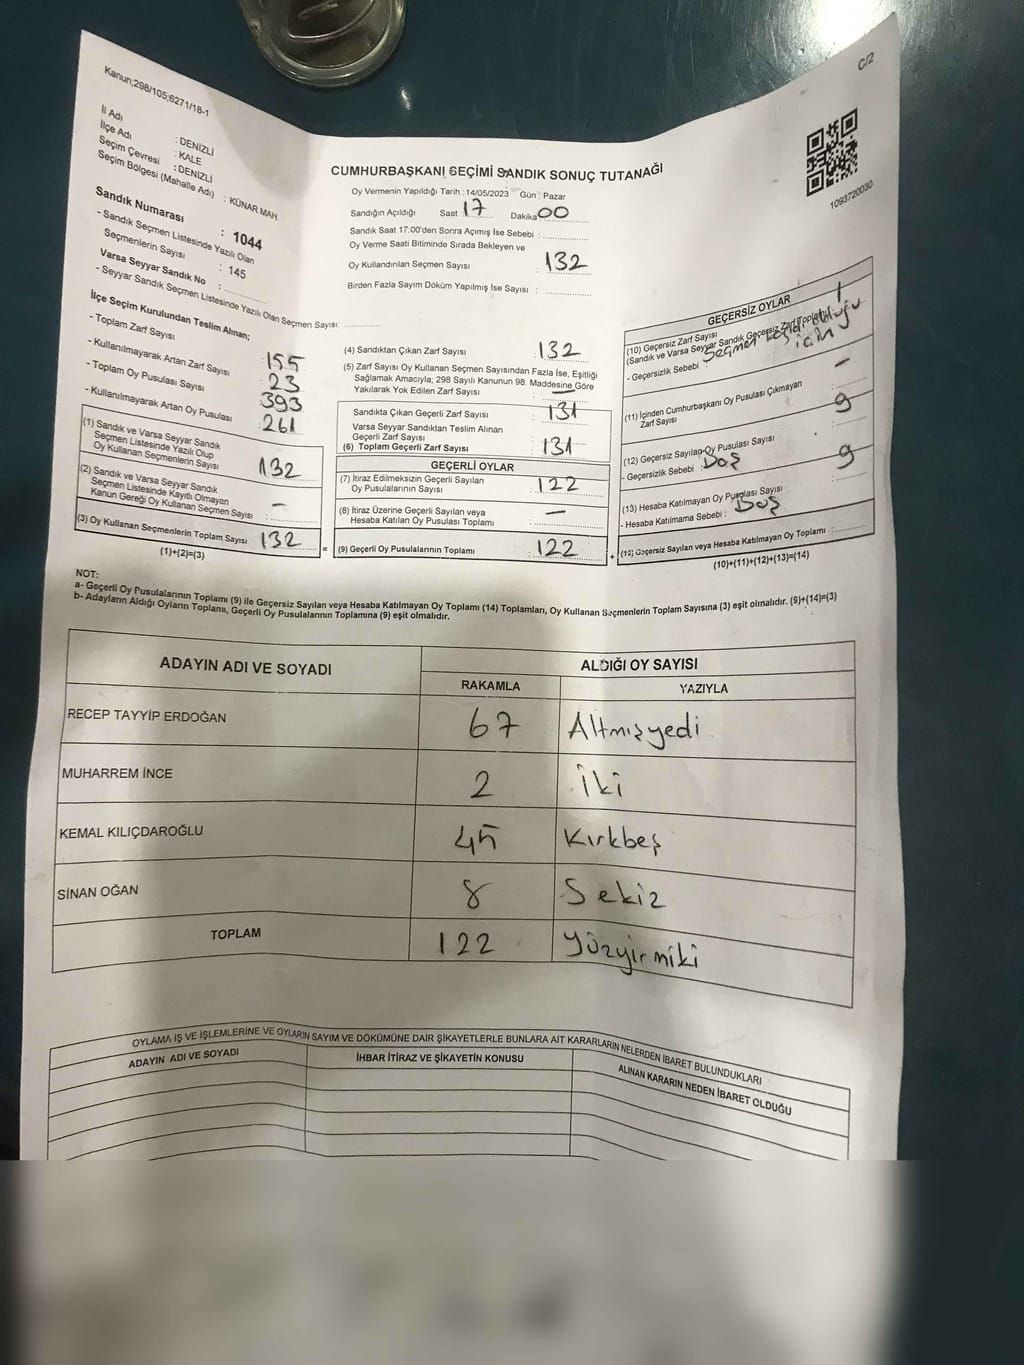 Kanun;298/105;6271/18-1
C/2
İl Adı : DENİZLİ
İlçe Adı : KALE
Seçim Çevresi : DENİZLİ
Seçim Bölgesi (Mahalle Adı) : KÜNAR MAH
Sandık Numarası : 1044
- Sandık Seçmen Listesinde Yazılı Olan
Seçmenlerin Sayısı : 145
Varsa Seyyar Sandık No :
- Seyyar Sandık Seçmen Listesinde Yazılı Olan Seçmen Sayısı:
CUMHURBAŞKANI SEÇİMİ SANDIK SONUÇ TUTANAĞI
Oy Vermenin Yapıldığı Tarih : 14/05/2023 Gün : Pazar
Sandığın Açıldığı Saat 17 Dakika 00
Sandık Saat 17:00'den Sonra Açımış İse Sebebi :
Oy Verme Saati Bitiminde Sırada Bekleyen ve
Oy Kullandırılan Seçmen Sayısı : 132
Birden Fazla Sayım Döküm Yapılmış İse Sayısı :
1093720030
İlçe Seçim Kurulundan Teslim Alınan;
- Toplam Zarf Sayısı : 155
- Kullanılmayarak Artan Zarf Sayısı : 23
- Toplam Oy Pusulası Sayısı : 393
- Kullanılmayarak Artan Oy Pusulası : 261
(1) Sandık ve Varsa Seyyar Sandık
Seçmen Listesinde Yazılı Olup
Oy Kullanan Seçmenlerin Sayısı : 132
(2) Sandık ve Varsa Seyyar Sandık
Seçmen Listesinde Kayıtlı Olmayan
Kanun Gereği Oy Kullanan Seçmen Sayısı : -
(3) Oy Kullanan Seçmenlerin Toplam Sayısı 132
(1)+(2)=(3)
(4) Sandıktan Çıkan Zarf Sayısı : 132
(5) Zarf Sayısı Oy Kullanan Seçmen Sayısından Fazla İse, Eşitliği
Sağlamak Amacıyla; 298 Sayılı Kanunun 98. Maddesine Göre
Yakılarak Yok Edilen Zarf Sayısı : -
Sandıkta Çıkan Geçerli Zarf Sayısı : 131
Varsa Seyyar Sandıktan Teslim Alınan
Geçerli Zarf Sayısı
(6) Toplam Geçerli Zarf Sayısı : 131
GEÇERLİ OYLAR
(7) İtiraz Edilmeksizin Geçerli Sayılan
Oy Pusulalarının Sayısı : 122
(8) İtiraz Üzerine Geçerli Sayılan veya
Hesaba Katılan Oy Pusulası Toplamı : -
= (9) Geçerli Oy Pusulalarının Toplamı : 122
GEÇERSİZ OYLAR
(10) Geçersiz Zarf Sayısı 1
(Sandık ve Varsa Seyyar Sandık Geçersiz Zarf Toplamı)
- Geçersizlik Sebebi : Seçmen olduğu
için
(11) İçinden Cumhurbaşkanı Oy Pusulası Çıkmayan
Zarf Sayısı : -
(12) Geçersiz Sayılan Oy Pusulası Sayısı : 9
- Geçersizlik Sebebi : Boş
(13) Hesaba Katılmayan Oy Pusulası Sayısı : 9
- Hesaba Katılmama Sebebi : Boş
+ (14) Geçersiz Sayılan veya Hesaba Katılmayan Oy Toplamı :
(10)+(11)+(12)+(13)=(14)
NOT:
a- Geçerli Oy Pusulalarının Toplamı (9) ile Geçersiz Sayılan veya Hesaba Katılmayan Oy Toplamı (14) Toplamları, Oy Kullanan Seçmenlerin Toplam Sayısına (3) eşit olmalıdır. (9)+(14)=(3)
b- Adayların Aldığı Oyların Toplamı, Geçerli Oy Pusulalarının Toplamına (9) eşit olmalıdır.
ADAYIN ADI VE SOYADI
ALDIĞI OY SAYISI
RAKAMLA YAZIYLA
RECEP TAYYİP ERDOĞAN 67 Altmışyedi
MUHARREM İNCE 2 İki
KEMAL KILIÇDAROĞLU 45 Kırkbeş
SİNAN OĞAN 8 Sekiz
TOPLAM 122 Yüzyirmiki
OYLAMA İŞ VE İŞLEMLERİNE VE OYLARIN SAYIM VE DÖKÜMÜNE DAİR ŞİKAYETLERLE BUNLARA AİT KARARLARIN NELERDEN İBARET BULUNDUKLARI
ADAYIN ADI VE SOYADI İHBAR İTİRAZ VE ŞİKAYETİN KONUSU ALINAN KARARIN NEDEN İBARET OLDUĞU